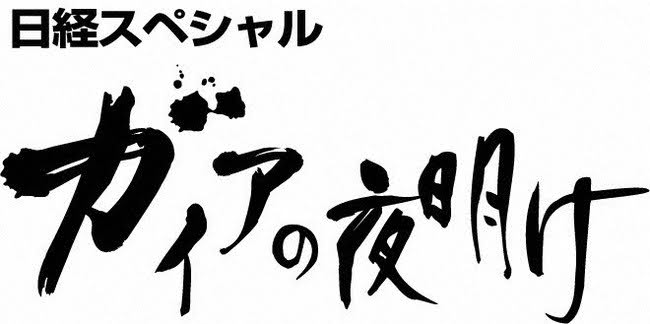 日経スペシャル
ガイアの夜明け